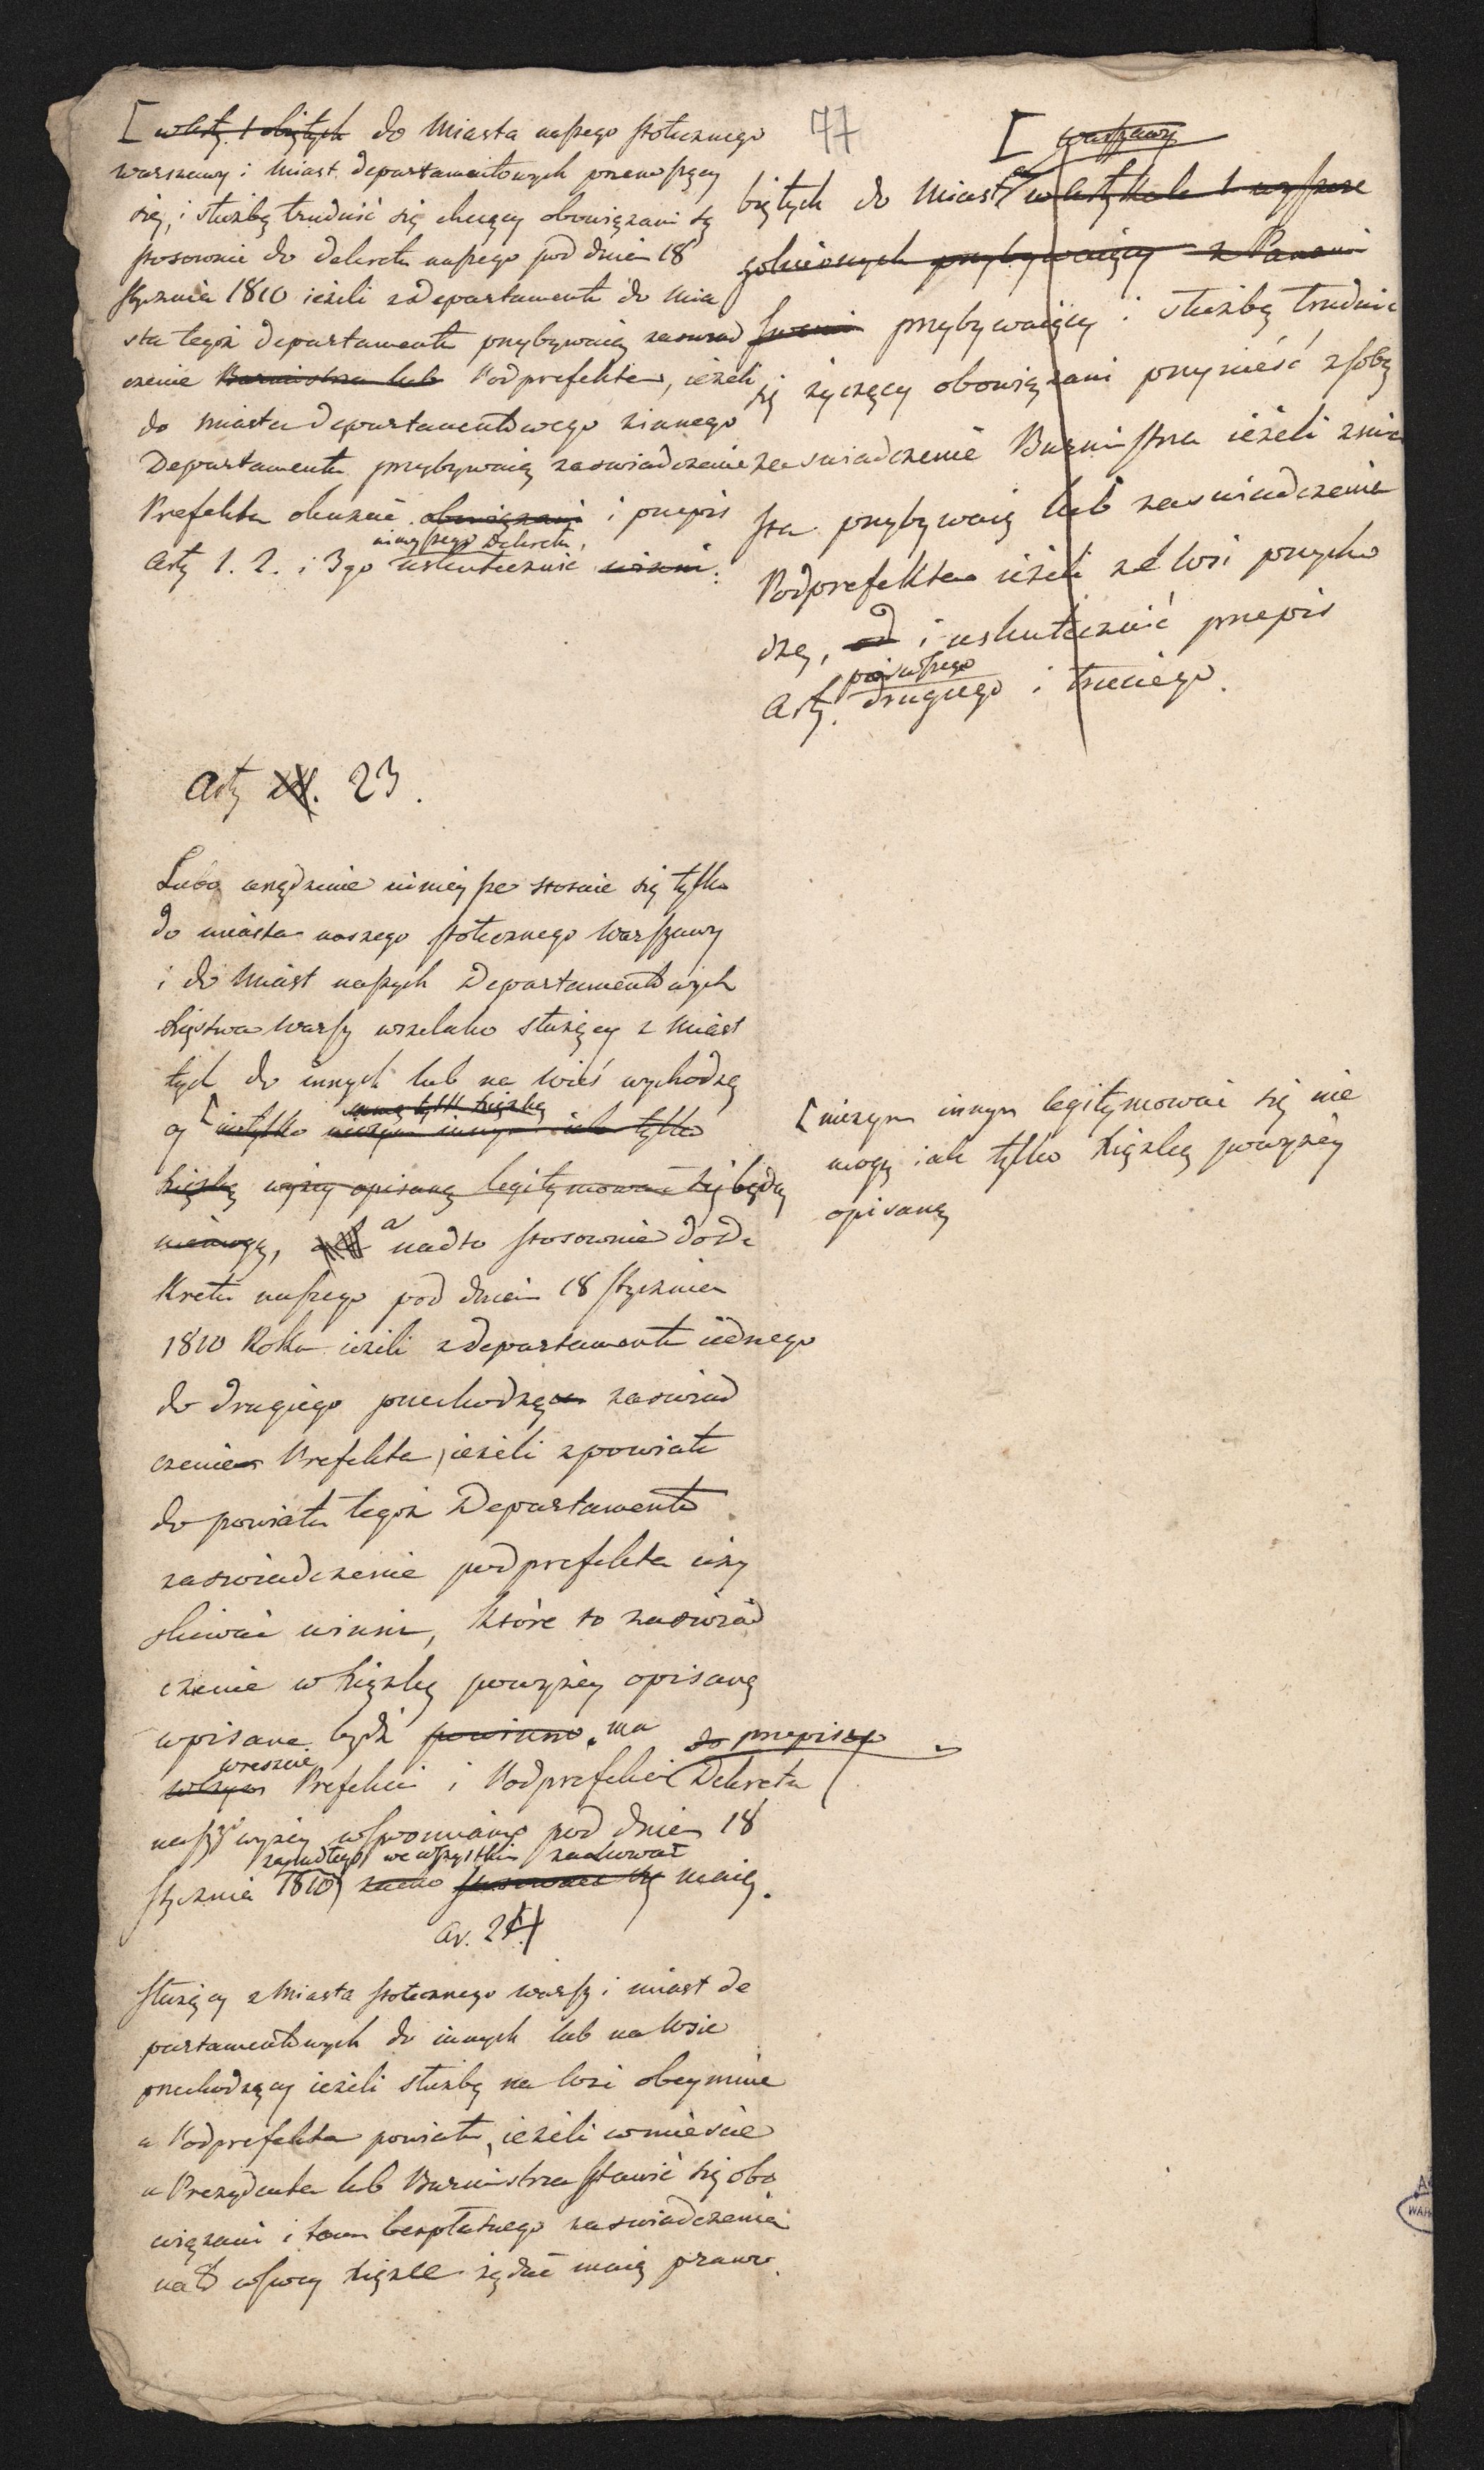 77
[ w Arty. 1 objętych do Miasta naszego stołecznego
warszawy i Miast departamentowych przenoszący
się, i służbą trudnić się chcący obowiązani są
stosownie do dekretu naszego pod dniem 18
stycznia 1810 ieżeli z departamentu do mia
sta tegoż departamentu przybywaią zaswiad
czenie Burmistrza lub Podprefekta, ieżeli
do miasta departamentowego z innego
Departamentu przybywaią zaswiadczenie
Prefekta okazać obowiązani i przepis
ninieyszego Dekretu
Arty 1. 2. i 3go uskutecznić winni.
[ warszawy
biętych do Miast w artykule 1 wyszcze
golnionych przybywaiący z Panami
swemi przybywaiący i służbą trudnić
się życzący obowiązani przynieść z sobą
zaswiadczenie Burmistrza ieżeli z mia
sta przybywaią lub zaswiadczenie
Podprefekta ieżeli ze wsi przycho
dzą, od i uskutecznić przepis
pierwszego
Arty. drugiego i trzeciego.
Arty 23.
Lubo urządzenie ninieysze stosuie się tylko
do miasta naszego stołecznego Warszawy
i do Miast naszych Departamentowych
Xięstwa Warsz wszelako służący z Miast
tych do innych lub na wieś wychodzą
cy [ nietylko niczym innym iak tylko
xiążką wyżey opisaną legitymować się będą
niemogą, a nadto stosownie do de
kretu naszego pod dniem 18 stycznia
1810 Roku ieżeli z departamentu iednego
do drugiego przechodzą zaswiad
czenie Prefekta, ieżeli z powiatu
do powiatu tegoż Departamentu
zaswiadczenie podprefekta uzy
skiwać winni, które to zaswiad
czenie w xiążkę powyżey opisaną
wpisane bydź powinno. ma do przepisów
wreszcie
Prefekci i Podprefekci Dekretu
naszego wyżey wspomniane pod dniem 18
zapadłego we wszystkim zachować
stycznia 1810 stosować się maią.
[ niczym innym legitymować się nie
mogą iak tylko xiążką powyżey
opisaną
Ar. 24
Służący z Miasta stołecznego Warsz i miast de
partamentowych do innych lub na wsie
przechodzący ieżeli służbę na wsi obeymuie
u Podprefekta powiatu, ieżeli w miescie
u Prezydenta lub Burmistrza stawić się obo
wiązani i tam bezpłatnego zaswiadczenia
na to w swey xiążce żądać maią prawo.